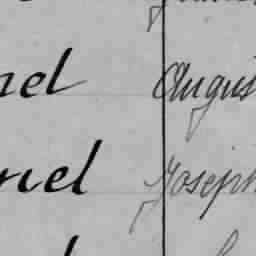 nel Augus
nel Joseph